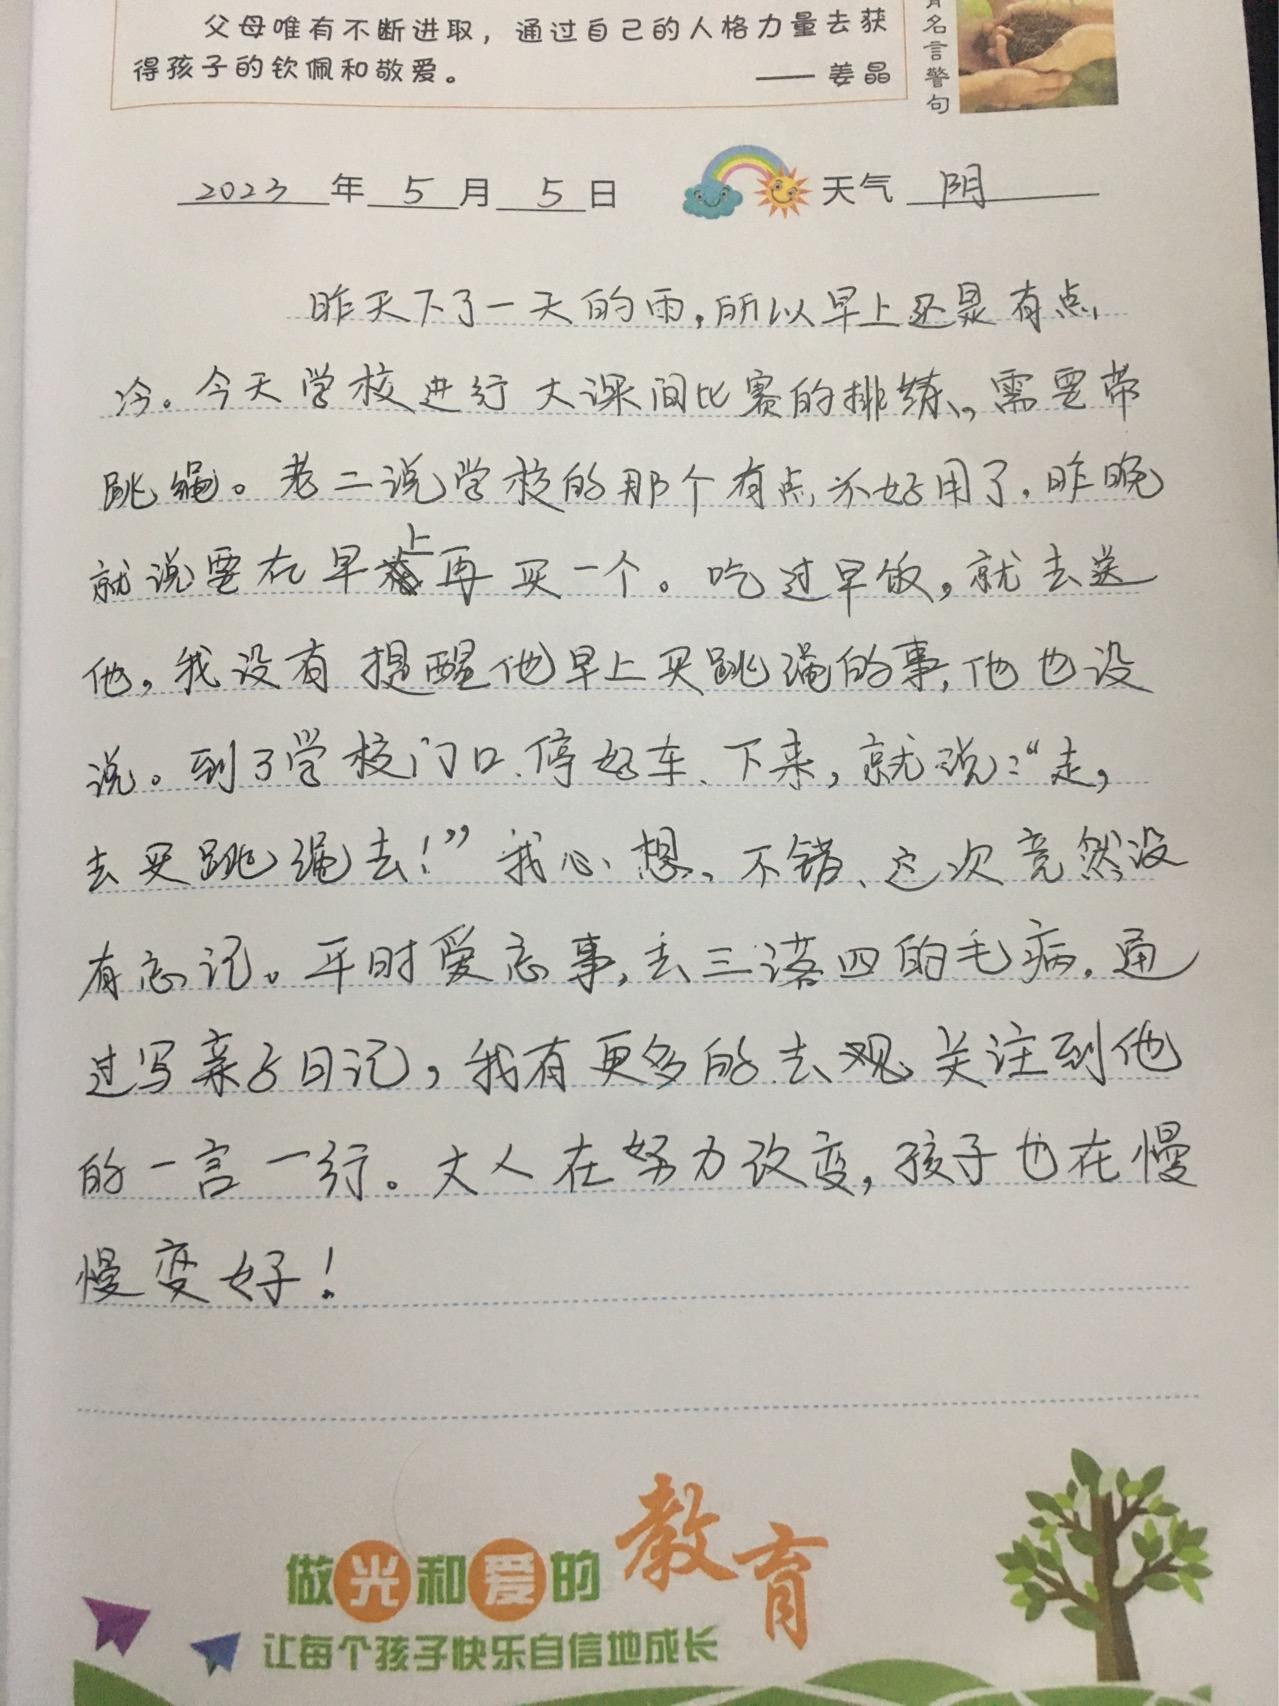 父母唯有不断进取，通过自己的人格力量去获
得孩子的钦佩和敬爱。
—— 姜晶
名言警句
2023 年 5 月 5 日 天气 阴
昨天下了一天的雨，所以早上还是有点
冷。今天学校进行大课间比赛的排练，需要带
跳绳。老二说学校的那个有点不好用了，昨晚
就说要在早上再买一个。吃过早饭，就去送
他，我没有提醒他早上买跳绳的事，他也没
说。到了学校门口、停好车、下来，就说：“走，
去买跳绳去！”我心想，不错、这次竟然没
有忘记。平时爱忘事，丢三落四的毛病，通
过写亲子日记，我有更多的去观关注到他
的一言一行。大人在努力改变，孩子也在慢
慢变好！
做光和爱的教育
让每个孩子快乐自信地成长